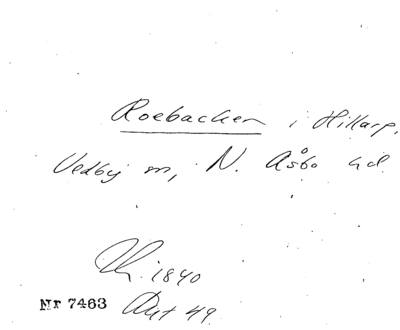 Roebacken i Hillarp,
Vedby sn, N. Åsbo hd.
1840
Nr 7463 Avt 49